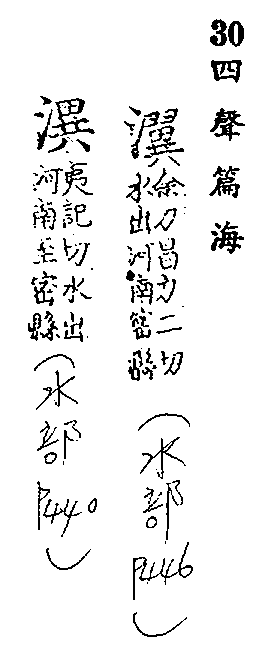 30四聲篇海
瀷
余力昌力二切
水出河南密縣
（水部P446）
潩
夷記切水出
河南至密縣
（水部P440）